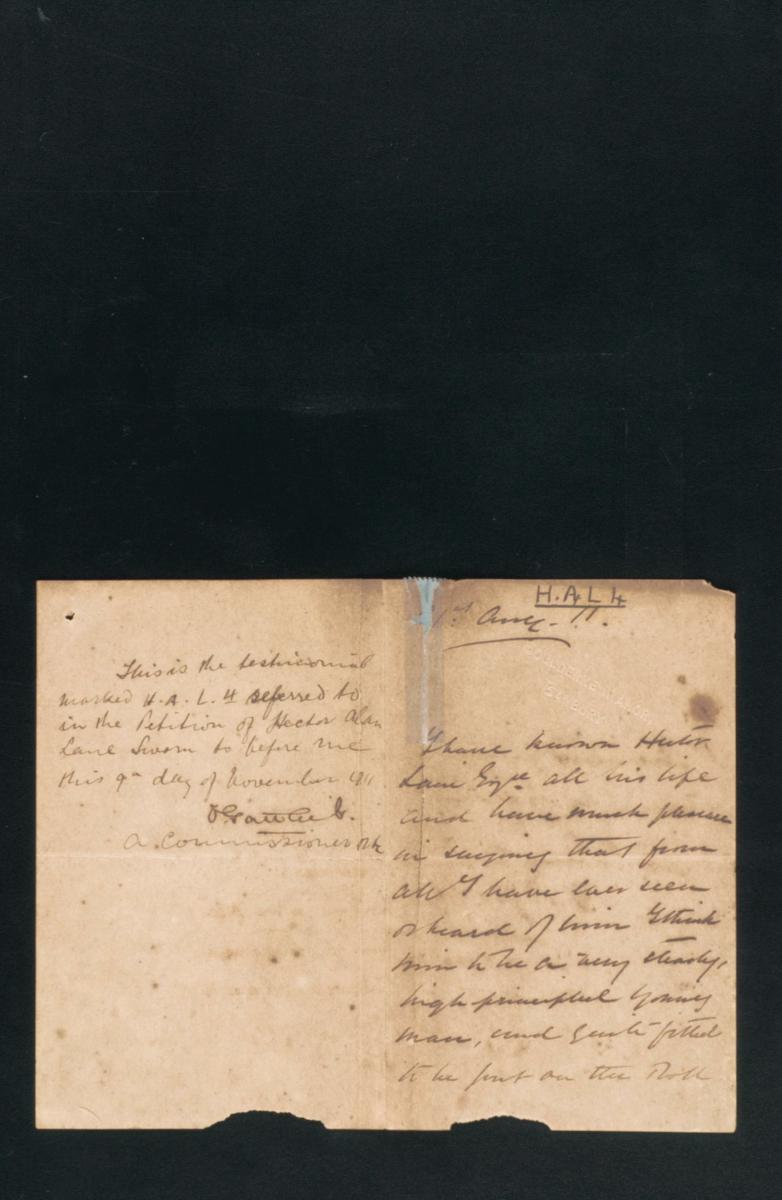 This is the testimonial
marked H.A.L. 4 referred to
in the Petition of Hector Alan
Lane Sworn to before me
this 9th day of November 1911
A Commissioner
H.A.L 4
1st Aug. 11.
I have known Hector
Lane Esqre all his life
and have much pleasure
in saying that from
all I have ever seen
or heard of him I think
him to be a very steady,
high principled young
man, and quite fitted
to be put on the Roll